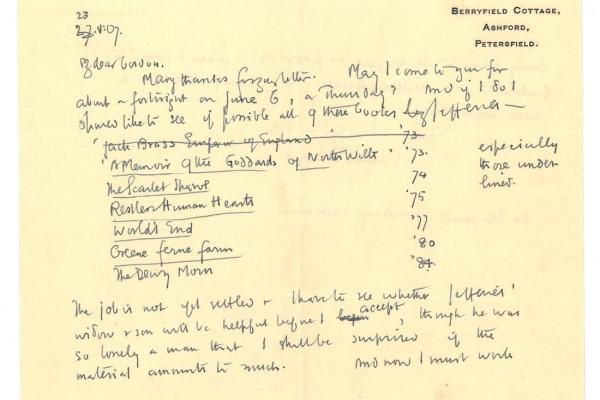 BERRYFIELD COTTAGE,
ASHFORD,
PETERSFIELD.
23
27.V.07.
My dear Gordon.
Many thanks for your letter. May I come to you for
about a fortnight on June 6, a Thursday? And if I do I
should like to see if possible all of these books by Jefferies—
'Jack Brass Emperor of England' '73
'A Memoir of the Goddards of North Wilts' '73.
The Scarlet Shawl '74
Restless Human Hearts '75
World's End '77
Greene Ferne Farm '80
The Dewy Morn '84
especially
those under-
lined.
The job is not yet settled & I have to see whether Jefferies'
widow & son will be helpful before I began accept, though he was
so lonely a man that I shall be surprised if the
material amounts to much. And now I must work